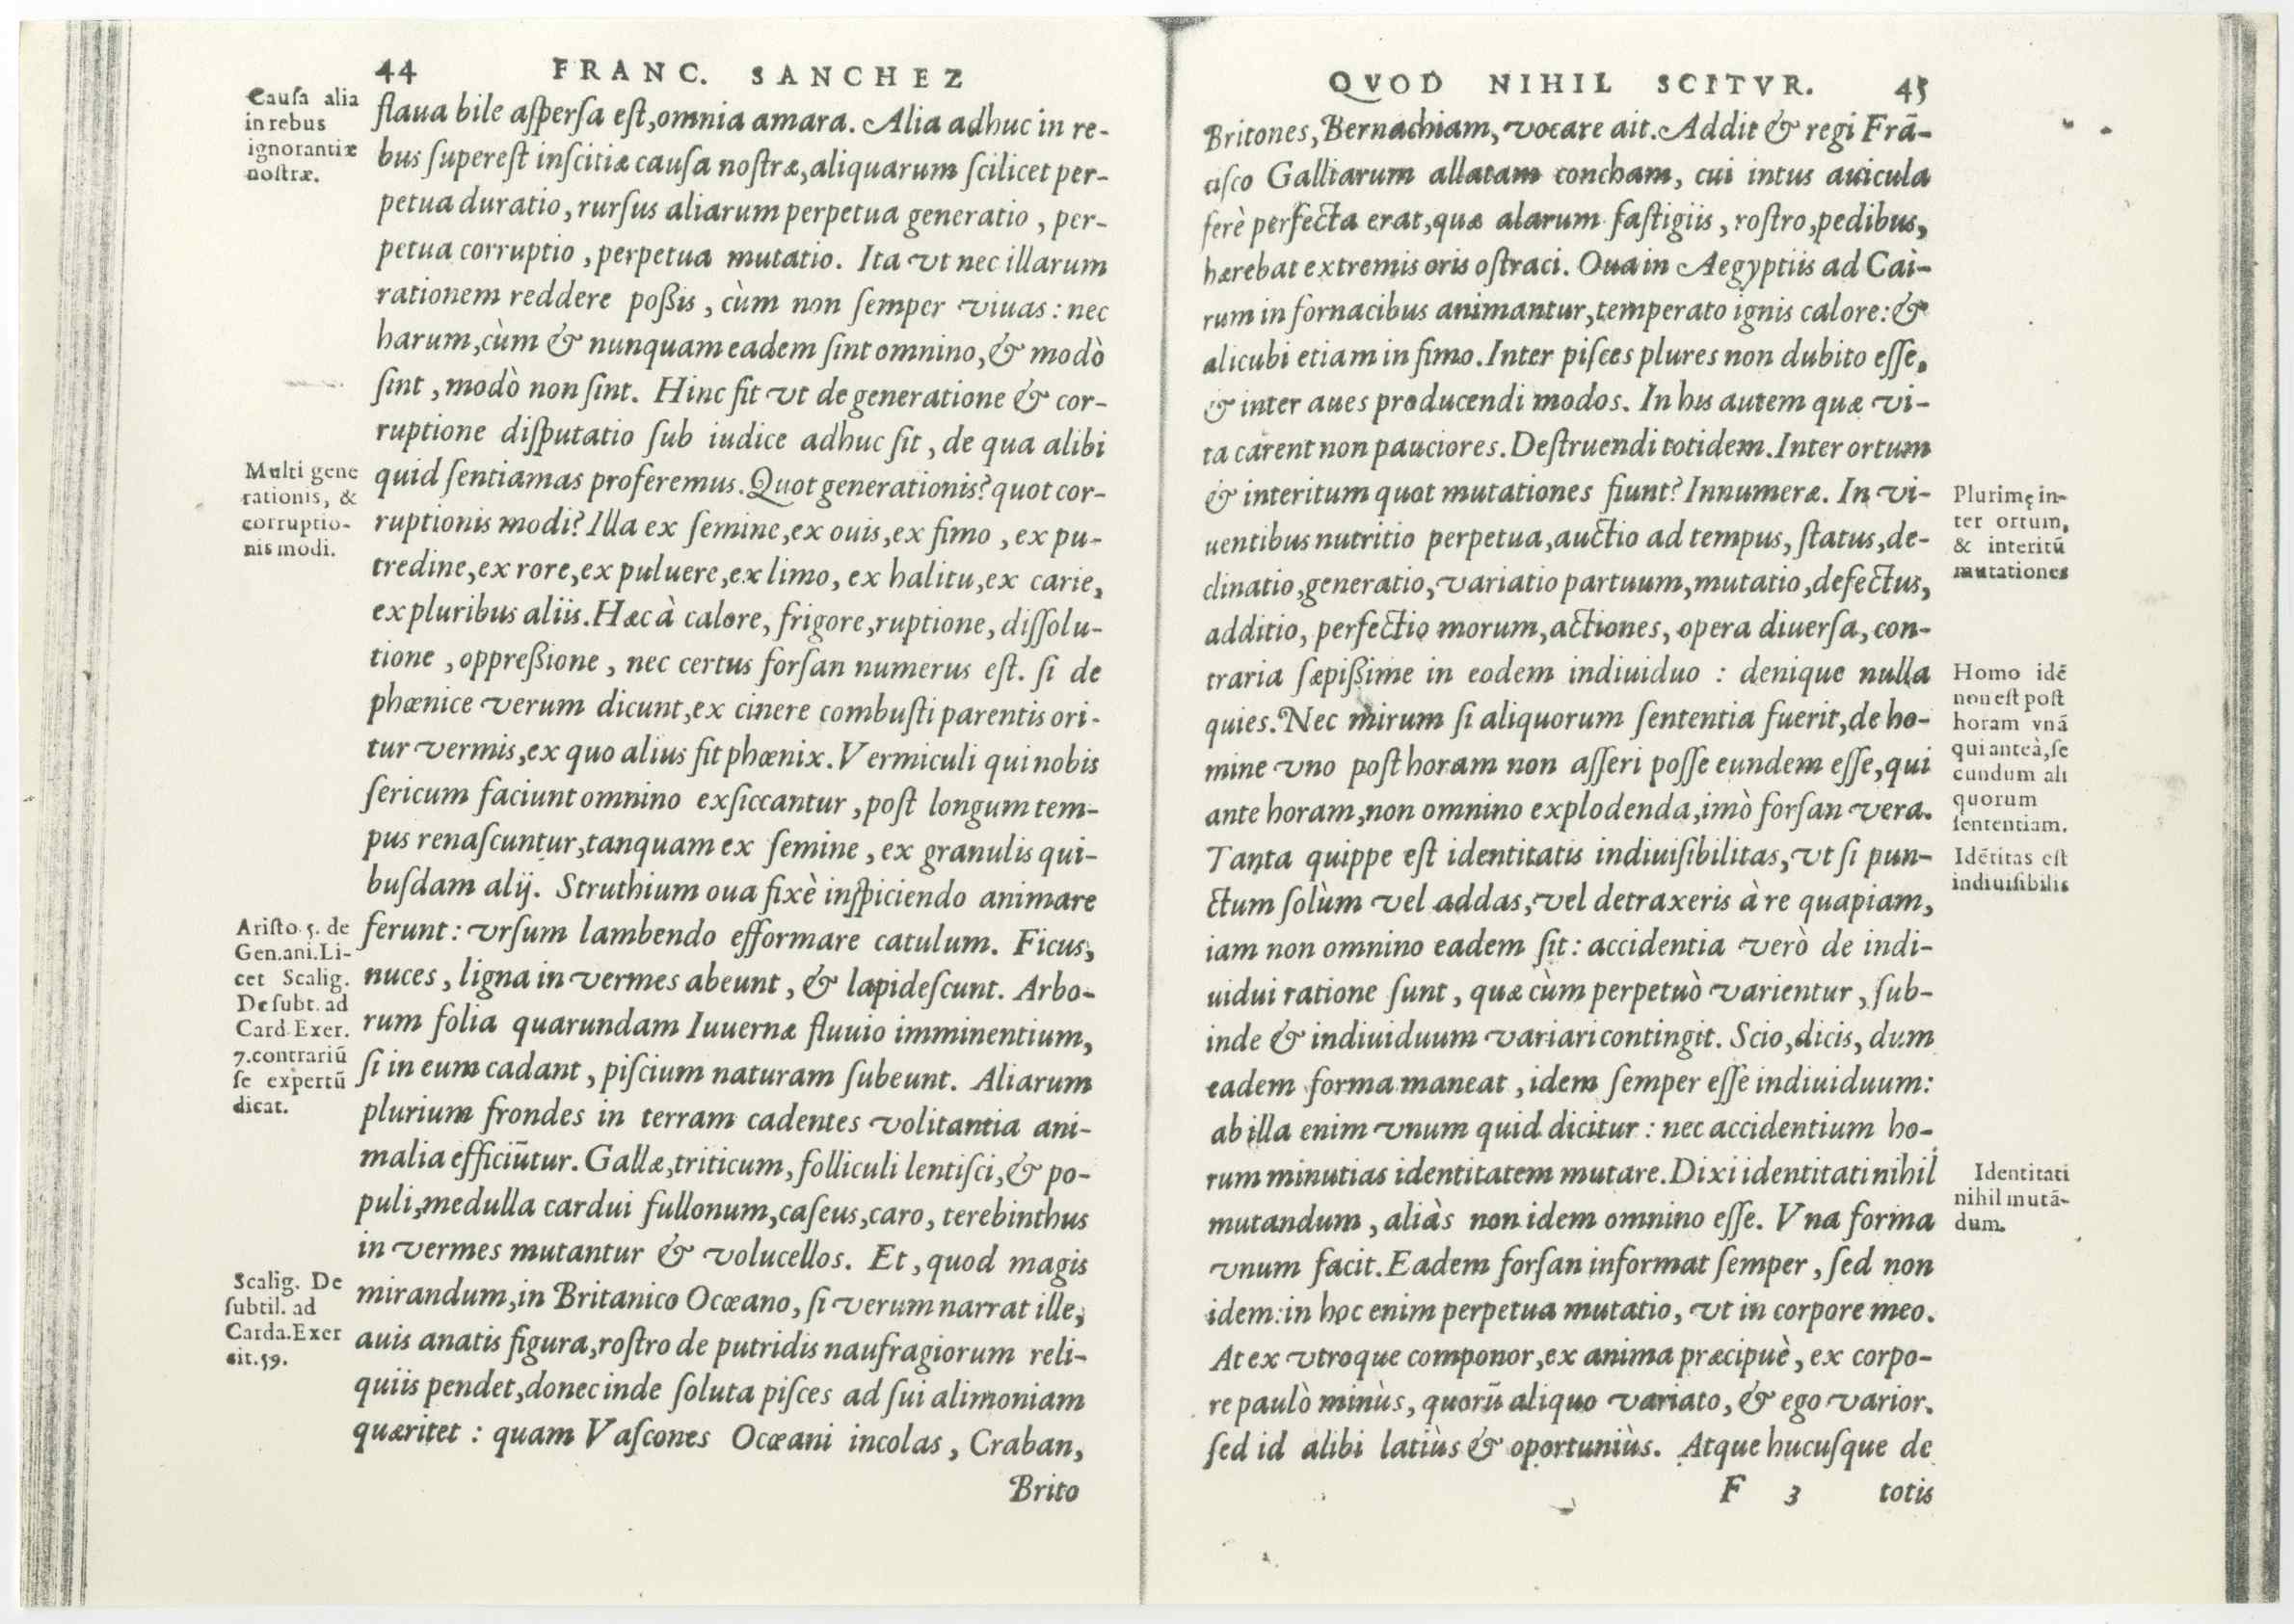 44 FRANC. SANCHEZ
Cauſa alia
in rebus
ignorantiæ
noſtræ.
flaua bile aſperſa eſt, omnia amara. Alia adhuc in re-
bus ſupereſt inſcitiæ cauſa noſtræ, aliquarum ſcilicet per-
petua duratio, rurſus aliarum perpetua generatio, per-
petua corruptio, perpetua mutatio. Ita vt nec illarum
rationem reddere poßis, cùm non ſemper viuas: nec
harum, cùm & nunquam eadem ſint omnino, & modò
ſint, modò non ſint. Hinc fit vt de generatione & cor-
ruptione diſputatio ſub iudice adhuc ſit, de qua alibi
Multi gene
rationis, &
corruptio-
nis modi.
quid ſentiamas proferemus. Quot generationis? quot cor-
ruptionis modi? Illa ex ſemine, ex ouis, ex fimo, ex pu-
tredine, ex rore, ex puluere, ex limo, ex halitu, ex carie,
ex pluribus aliis. Hæc à calore, frigore, ruptione, diſſolu-
tione, oppreßione, nec certus forſan numerus eſt. ſi de
phœnice verum dicunt, ex cinere combuſti parentis ori-
tur vermis, ex quo alius fit phœnix. Vermiculi qui nobis
ſericum faciunt omnino exſiccantur, poſt longum tem-
pus renaſcuntur, tanquam ex ſemine, ex granulis qui-
buſdam alij. Struthium oua fixè inſpiciendo animare
Ariſto. 5. de
Gen. ani. Li-
cet Scalig.
De ſubt. ad
Card. Exer.
7. contrariū
ſe expertū
dicat.
ferunt: vrſum lambendo efformare catulum. Ficus,
nuces, ligna in vermes abeunt, & lapideſcunt. Arbo-
rum folia quarundam Iuuernæ fluuio imminentium,
ſi in eum cadant, piſcium naturam ſubeunt. Aliarum
plurium frondes in terram cadentes volitantia ani-
malia efficiūtur. Gallæ, triticum, folliculi lentiſci, & po-
puli, medulla cardui fullonum, caſeus, caro, terebinthus
in vermes mutantur & volucellos. Et, quod magis
Scalig. De
ſubtil. ad
Carda. Exer
cit. 59.
mirandum, in Britanico Oceano, ſi verum narrat ille,
auis anatis figura, roſtro de putridis naufragiorum reli-
quiis pendet, donec inde ſoluta piſces ad ſui alimoniam
quæritet: quam Vaſcones Oceani incolas, Craban,
Brito
QVOD NIHIL SCITVR. 45
Britones, Bernachiam, vocare ait. Addit & regi Frā-
ciſco Galliarum allatam concham, cui intus auicula
ferè perfecta erat, quæ alarum faſtigiis, roſtro, pedibus,
hærebat extremis oris oſtraci. Oua in Aegyptiis ad Cai-
rum in fornacibus animantur, temperato ignis calore: &
alicubi etiam in fimo. Inter piſces plures non dubito eſſe,
& inter aues producendi modos. In his autem quæ vi-
ta carent non pauciores. Deſtruendi totidem. Inter ortum
& interitum quot mutationes fiunt? Innumeræ. In vi-
uentibus nutritio perpetua, auctio ad tempus, ſtatus, de-
clinatio, generatio, variatio partuum, mutatio, defectus,
additio, perfectio morum, actiones, opera diuerſa, con-
Plurimę in-
ter ortum,
& interitū
mutationes
traria ſæpißime in eodem indiuiduo: denique nulla
quies. Nec mirum ſi aliquorum ſententia fuerit, de ho-
mine vno poſt horam non aſſeri poſſe eundem eſſe, qui
ante horam, non omnino explodenda, imò forſan vera.
Homo idē
non eſt poſt
horam vnā
qui anteà, ſe
cundum ali
quorum
ſententiam.
Tanta quippe eſt identitatis indiuiſibilitas, vt ſi pun-
ctum ſolùm vel addas, vel detraxeris à re quapiam,
Idētitas eſt
indiuiſibilis
iam non omnino eadem ſit: accidentia verò de indi-
uidui ratione ſunt, quæ cùm perpetuò varientur, ſub-
inde & indiuiduum variari contingit. Scio, dicis, dum
eadem forma maneat, idem ſemper eſſe indiuiduum:
ab illa enim vnum quid dicitur: nec accidentium ho-
rum minutias identitatem mutare. Dixi identitati nihil
mutandum, aliàs non idem omnino eſſe. Vna forma
Identitati
nihil mutā-
dum.
vnum facit. Eadem forſan informat ſemper, ſed non
idem: in hoc enim perpetua mutatio, vt in corpore meo.
At ex vtroque componor, ex anima præcipuè, ex corpo-
re paulò minùs, quorū aliquo variato, & ego varior.
ſed id alibi latiùs & oportuniùs. Atque hucuſque de
F 3 totis